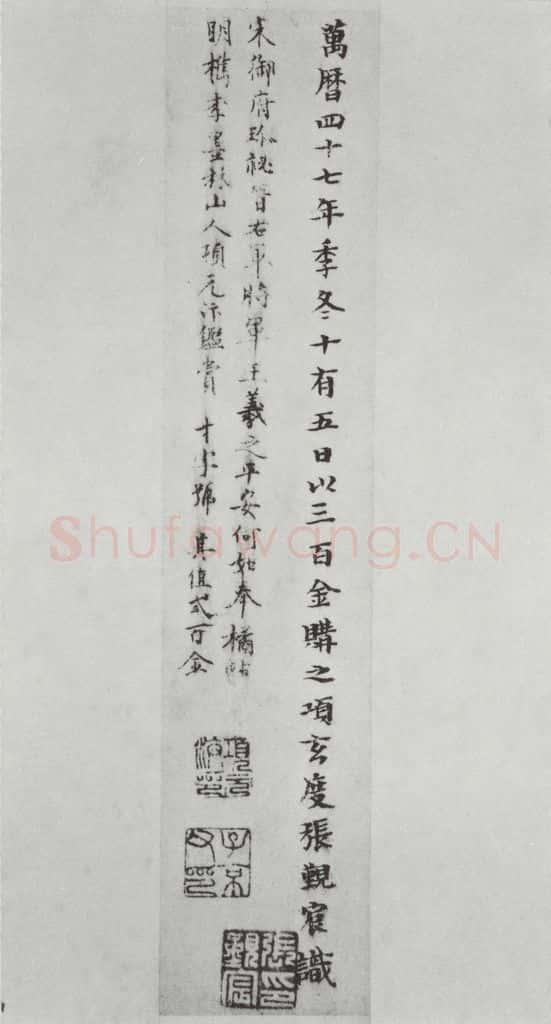 萬曆四十七年季冬十有五日以三百金購之項玄度張觀宸識
宋御府珍秘晉右軍將軍王羲之平安何如奉橘帖
明檇李墨林山人項元汴鑑賞 才字號 其值貳百金
項元汴印
子京父印
張觀宸印
Shufawang.CN